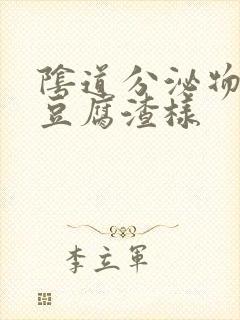 陰道分泌物
豆腐渣樣
李立軍